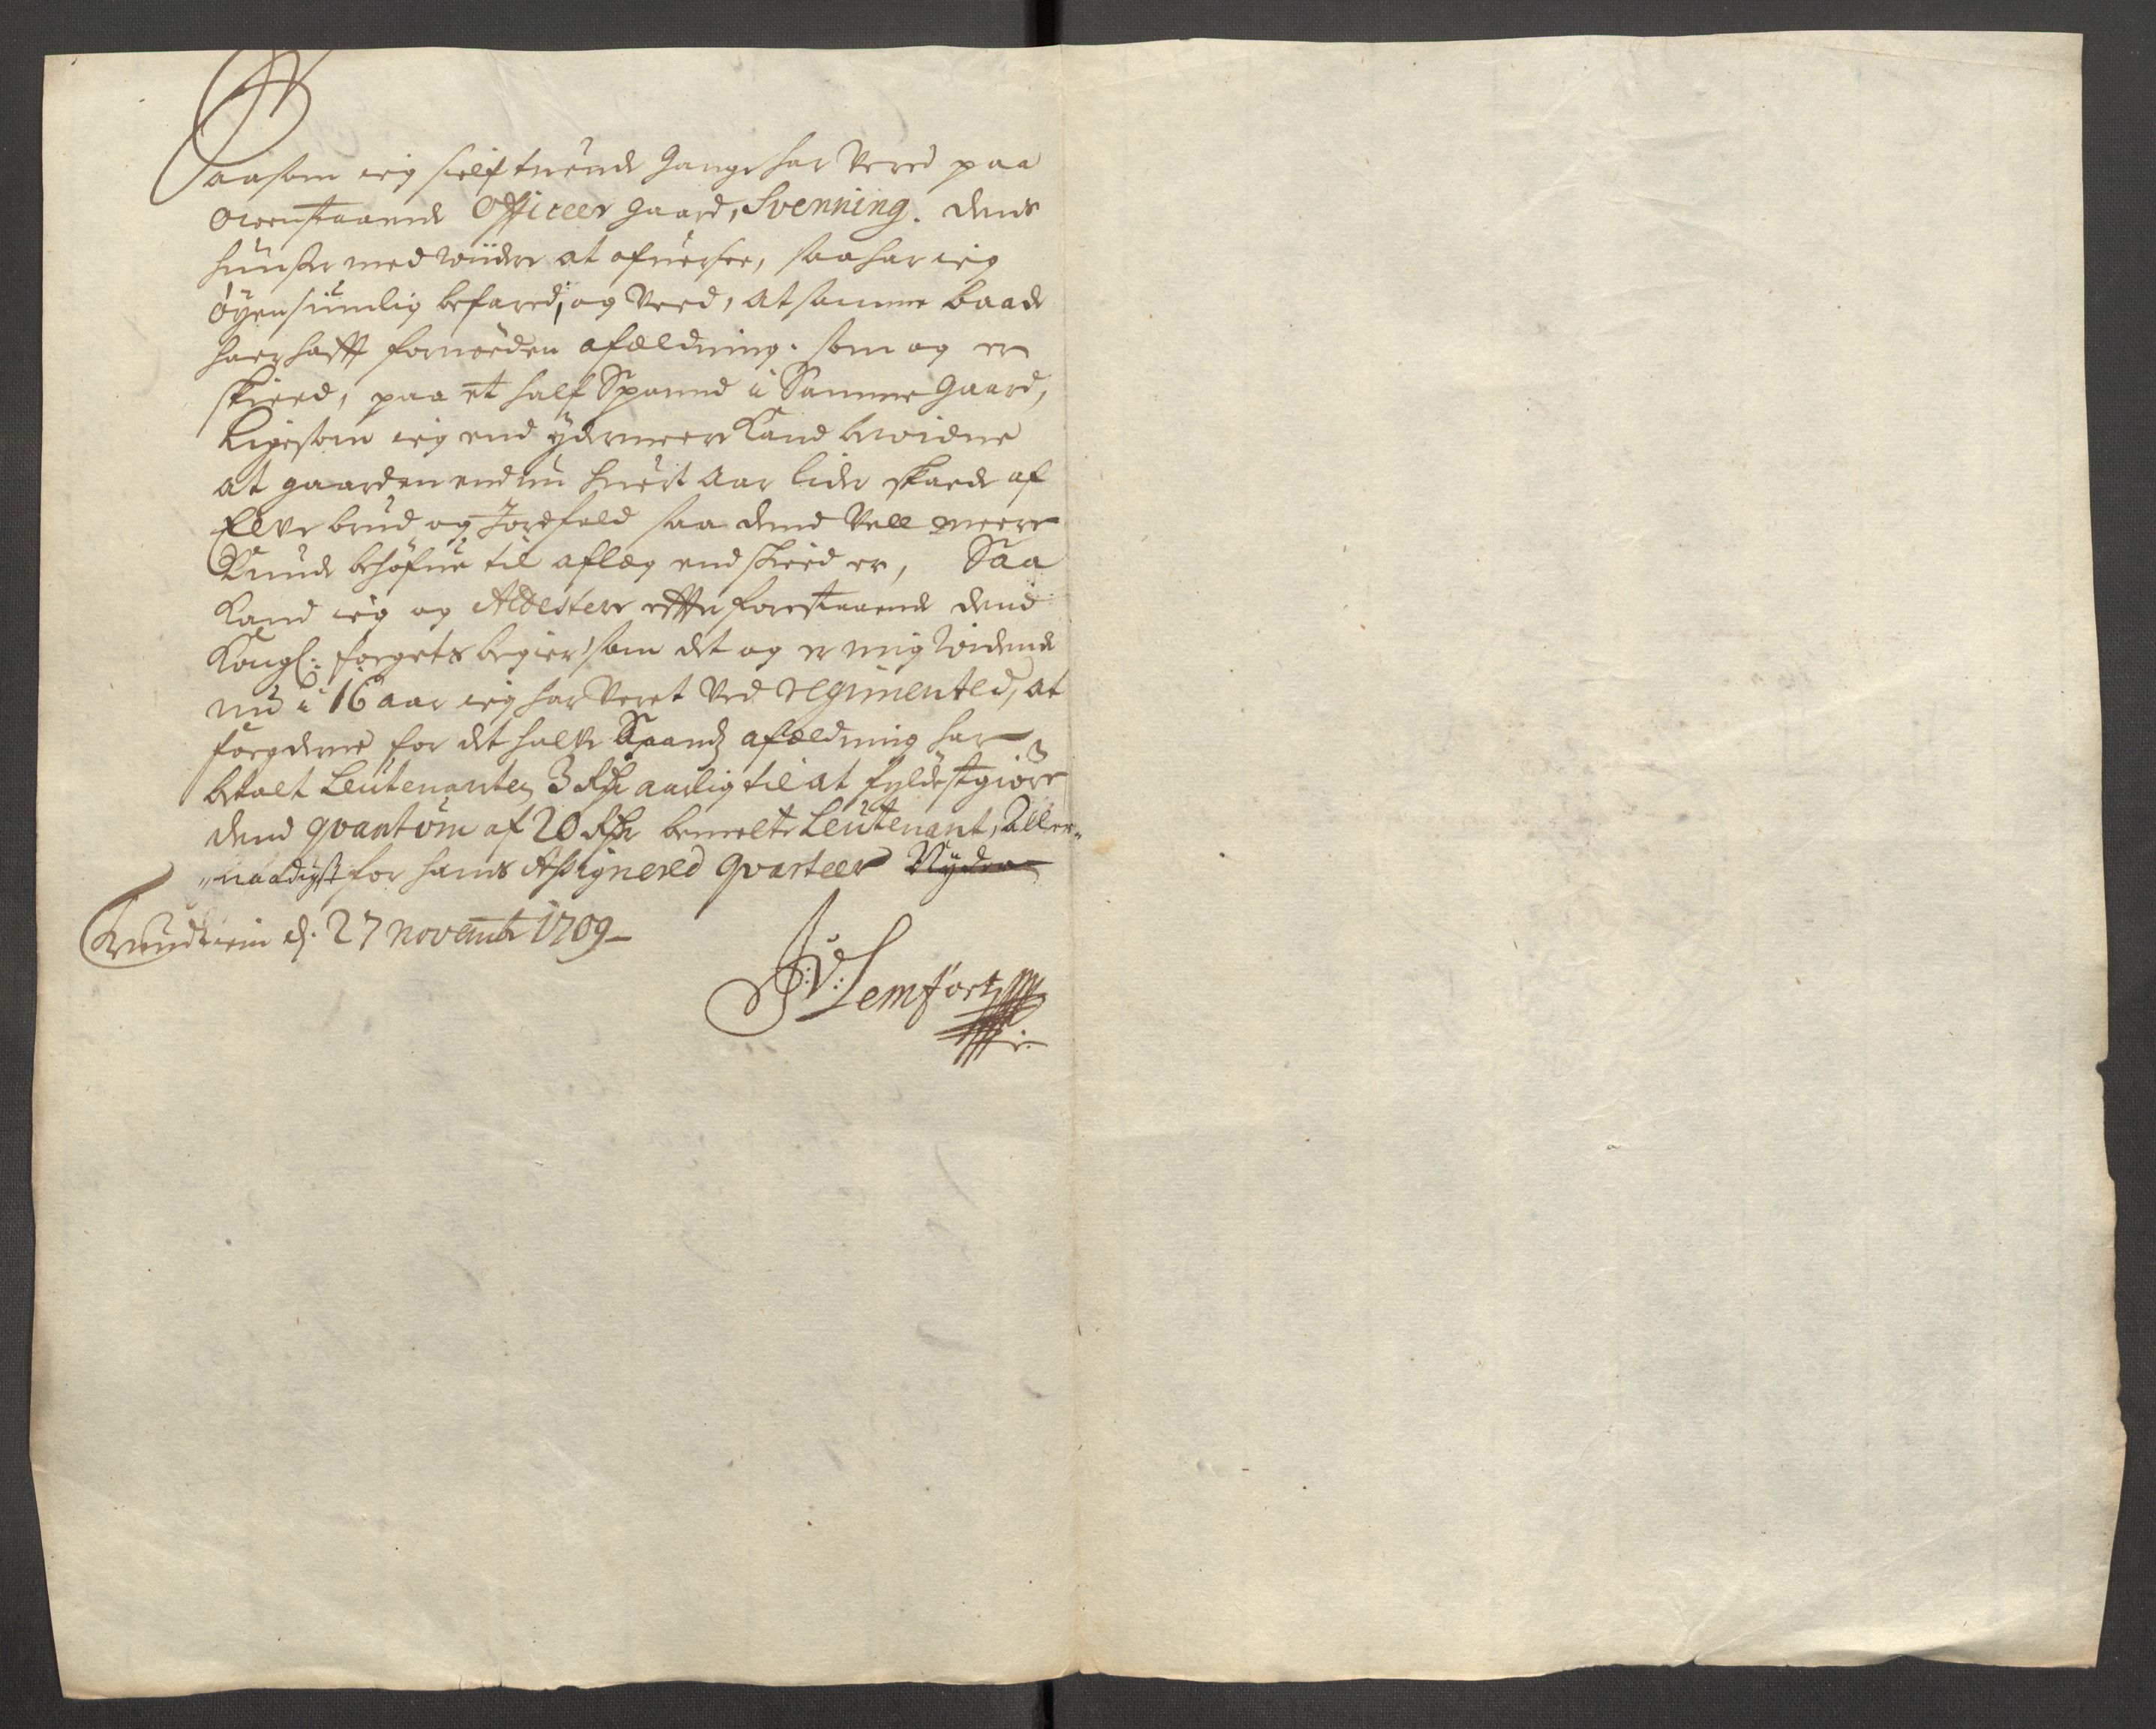 Saasom ieg self tuende gange har Vered paa
Ovenstaaende Officeer gaard, Svenning. dends
huuser med widere at ofuersee, saa har ieg
øyensiunlig befared, og Veed, at samme baade
haer hafft fornøeden afældning. som og er
skeed, paa et half Spannd i Samme gaard,
Ligesom ieg end ydermeere Kand beviidne
at gaarden end nu huert aar lider skaede af
Elve brud og Jordfald saa dend Vell meere
Kunde behøfue til aflæg end skeed er, Saa
Kand ieg og Attestere effter forestaaende dend
Kongl: fogets begier, som det og er mig widende
nu i 16 aar ieg har Veret Ved regimented, at
fogderne for det halve Spands afældning har
betalt Leutenanten 3 Rdr aarlig til at fyldestgiøre
dend qvantum af 20 Rdr bemelte Leutenant, Aller-
naadigst for hans Assignered qvarteer Nyder
Trundhiem d. 27 Novembr 1709
J: V: Lemfort